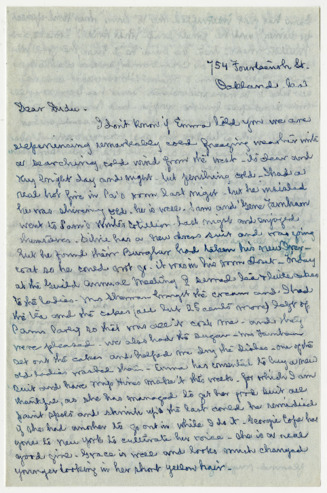 754 Fourteenth St.
Oakland, Cal
Dear Dudu -
I don't know if Emma told you we are
experiencing remarkably cold freezing weather with
a searching cold wind from the west - its clear and
very bright day and night - but perishing cold - I had a
real hot fire in Pa's room last night - but he insisted
he was shivering cold - he is well - Sam and Gene Farnham
went to Pom's Winter Cotillion last night and enjoyed
themselves - has a new dress suit and was going
but he found their Burglar had taken his new Grey
coat so he could not go - it was in his room closet - Monday
at the Guild annual Meeting I served tea & little cakes
to the ladies - Mrs Sherman brought the cream and I had
the tea and the cakes (all but 25 cents more) left of
Sam's party so that was all it cost me - and they
were pleased - we also had the sugar - Mrs Farnham
set out the cakes and helped me dry the dishes - one of the
old Ladies washed them - Emma has consented to buy a new
suit and have make it this week - for which I am
thankful, as she has managed to get her pink suit all
paint spots and shrunk up - the last could be remedied
if she had another to go out in while I do it - Georgie Cope has
gone to New York to cultivate her voice - she is a real
good girl - Grace is well and looks much changed
younger looking in her short yellow hair -